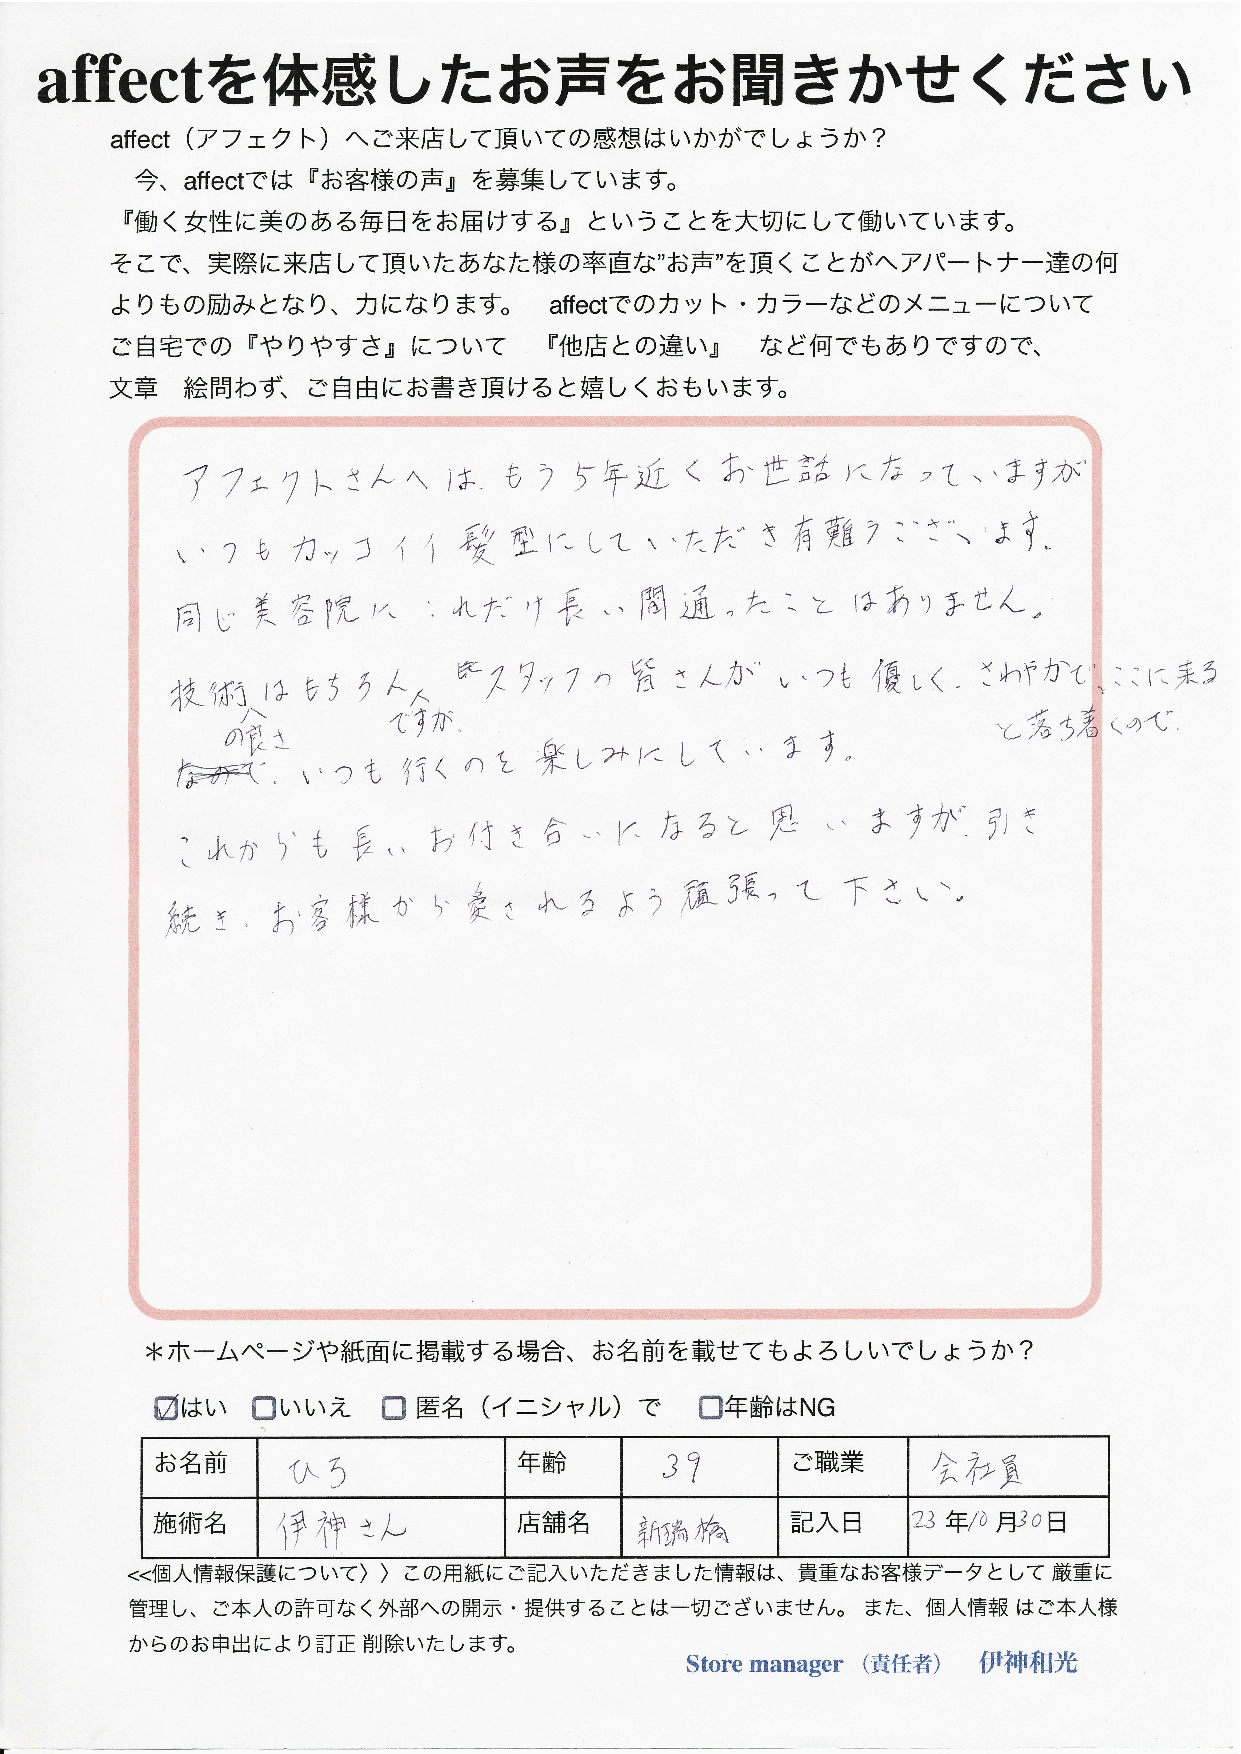 affectを体感したお声をお聞きかせください
affect（アフェクト）へご来店して頂いての感想はいかがでしょうか？
今、affectでは『お客様の声』を募集しています。
『働く女性に美のある毎日をお届けする』ということを大切にして働いています。
そこで、実際に来店して頂いたあなた様の率直な”お声”を頂くことがヘアパートナー達の何
よりもの励みとなり、力になります。　affectでのカット・カラーなどのメニューについて
ご自宅での『やりやすさ』について　『他店との違い』　など何でもありですので、
文章　絵問わず、ご自由にお書き頂けると嬉しくおもいます。
アフェクトさんへは、もう5年近くお世話になっていますが
いつもカッコイイ髪型にしていただき有難うございます。
同じ美容院にこれだけ長い間通ったことはありません。
技術はもちろん スタッフの皆さんがいつも優しく、さわやかで、ここに来る
の良さ ですが、 と落ち着くので、
なので、いつも行くのを楽しみにしています。
これからも長いお付き合いになると思いますが、引き
続き、お客様から愛されるよう頑張って下さい。
＊ホームページや紙面に掲載する場合、お名前を載せてもよろしいでしょうか？
はい いいえ 匿名（イニシャル）で 年齢はNG
お名前 ひろ 年齢 39 ご職業 会社員
施術名 伊神さん 店舗名 新瑞橋 記入日 23年10月30日
<<個人情報保護について〉〉この用紙にご記入いただきました情報は、貴重なお客様データとして 厳重に
管理し、ご本人の許可なく外部への開示・提供することは一切ございません。 また、個人情報 はご本人様
からのお申出により訂正 削除いたします。
Store manager （責任者）　伊神和光